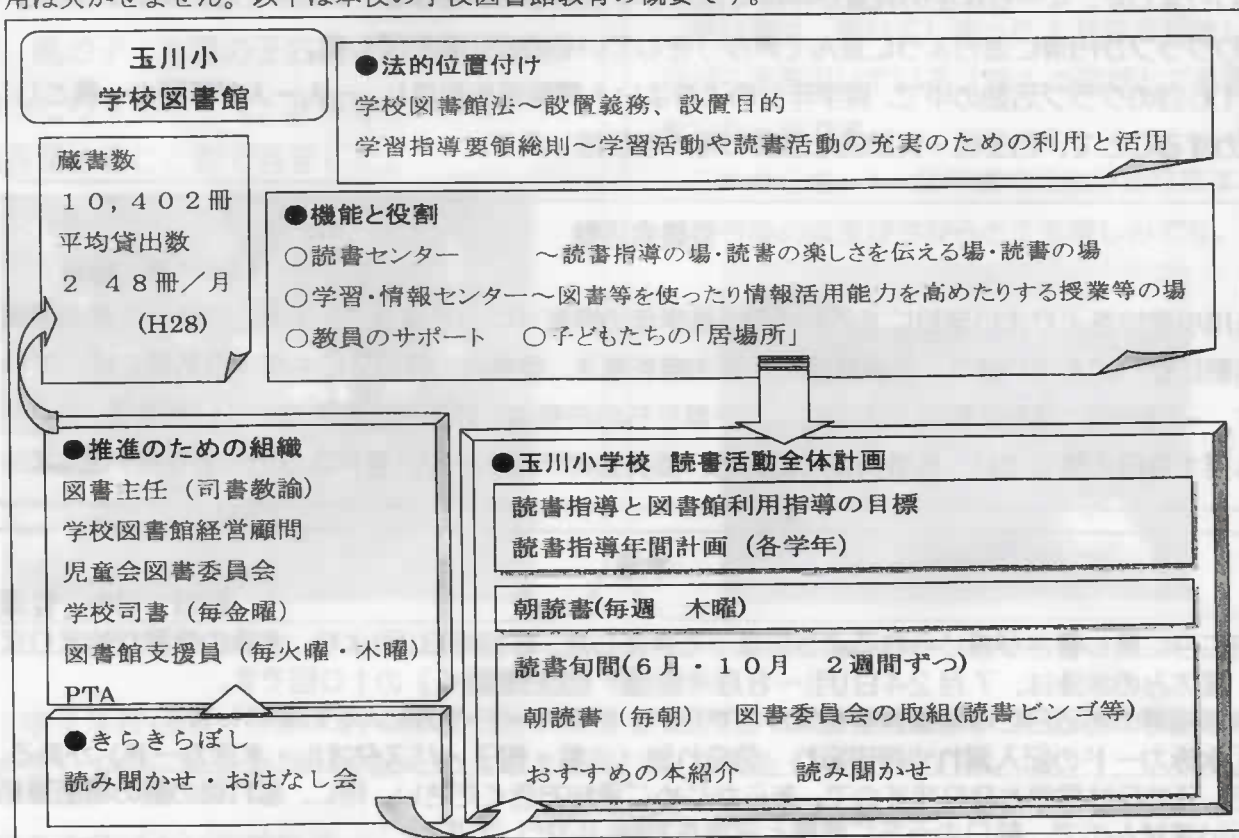 用は欠かせません。以下は本校の学校図書館教育の概要です。
玉川小
学校図書館
●法的位置付け
学校図書館法～設置義務、設置目的
学習指導要領総則～学習活動や読書活動の充実のための利用と活用
蔵書数
１０，４０２冊
平均貸出数
２ ４８冊／月
(H28)
●機能と役割
○読書センター ～読書指導の場・読書の楽しさを伝える場・読書の場
○学習・情報センター～図書等を使ったり情報活用能力を高めたりする授業等の場
○教員のサポート ○子どもたちの「居場所」
●推進のための組織
図書主任（司書教諭）
学校図書館経営顧問
児童会図書委員会
学校司書（毎金曜）
図書館支援員（毎火曜・木曜）
PTA
●きらきらぼし
読み聞かせ・おはなし会
●玉川小学校 読書活動全体計画
読書指導と図書館利用指導の目標
読書指導年間計画（各学年）
朝読書(毎週 木曜)
読書旬間(6月・10月 2週間ずつ)
朝読書（毎朝） 図書委員会の取組(読書ビンゴ等)
おすすめの本紹介 読み聞かせ